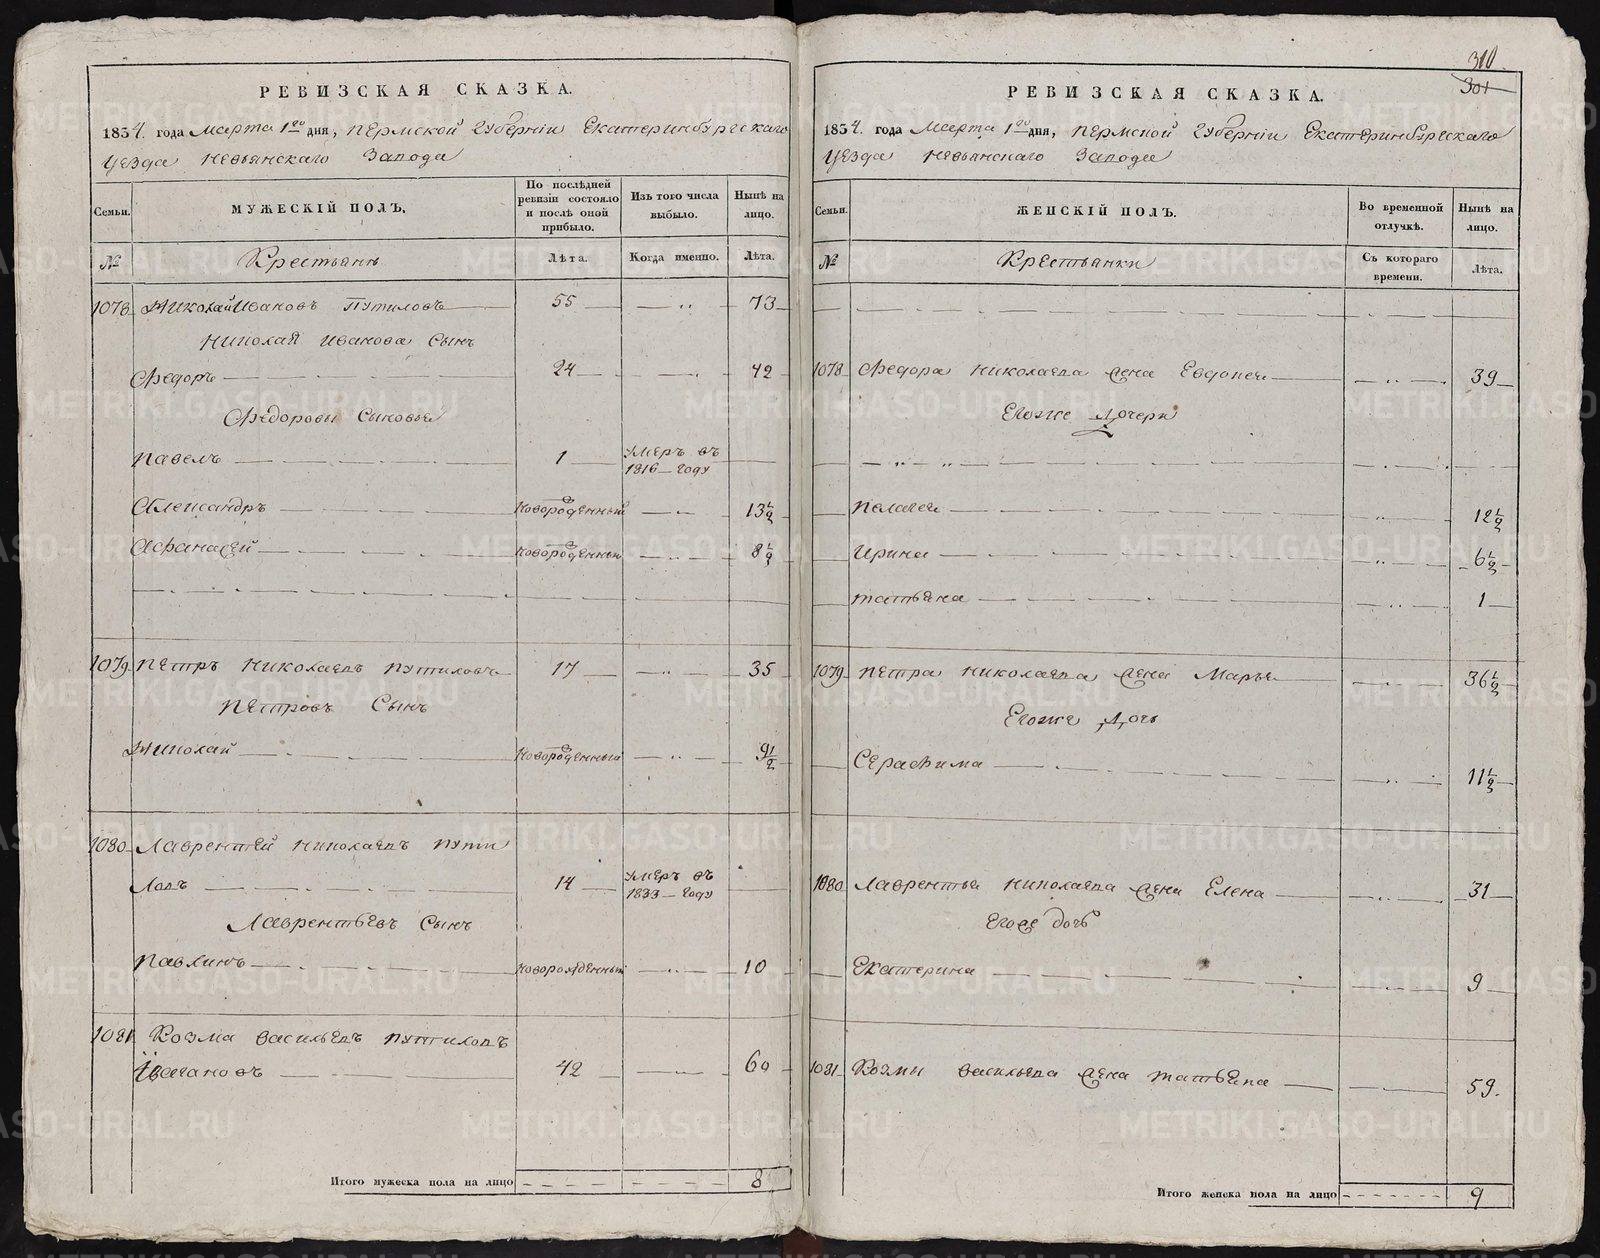 РЕВИЗСКАЯ СКАЗКА.
1834. года Марта 1го дня, Пермской Губернiи Екатеринбургскаго
Уезда Невьянскаго Завода
Семьи.
МУЖЕСКIЙ ПОЛЪ.
По послѣдней ревизiи состояло и послѣ оной прибыло.
Изъ того числа выбыло.
Нынѣ на лицо.
№
Крестьянѣ
Лѣта.
Когда именно.
Лѣта.
1078 Николай Ивановъ Путиловъ 55 73
Николая Иванова Сынъ
Федоръ 24 42
Федоровы Сыновья
Павелъ 1 умеръ въ 1816 году
Александръ Новорожденный 13½
Афанасей Новорожденный 8½
1079 Петръ Николаевъ Путиловъ 17 35
Петровъ Сынъ
Николай Новорожденный 9½
1080 Лаврентей Николаевъ Пути
ловъ 14 умеръ въ 1833 году
Лаврентьевъ Сынъ
Павлинъ Новорожденный 10
1081 Козма Васильевъ Путиловъ
42 60
Итого мужеска пола на лицо 8
310
301
РЕВИЗСКАЯ СКАЗКА.
1834. года Марта 1го дня, Пермской Губернiи Екатеринбургскаго
Уезда Невьянскаго Завода
Семьи.
ЖЕНСКIЙ ПОЛЪ.
Во временной отлучкѣ.
Нынѣ на лицо.
№
Крестьянки
Съ котораго времени.
Лѣта.
1078 Федора Николаева жена Евдокея 39
Егоже Дочери
Пелагея 12½
Ирина 6½
Татьяна 1
1079 Петра Николаева жена Марья 36½
Егоже Дочь
Серафима 11½
1080 Лаврентья Николаева жена Елена 31
Егоже дочь
Екатерина 9
1081 Козмы Васильева жена Татьяна 59.
Итого женска пола на лицо 9
METRIKI.GASO-URAL.RU